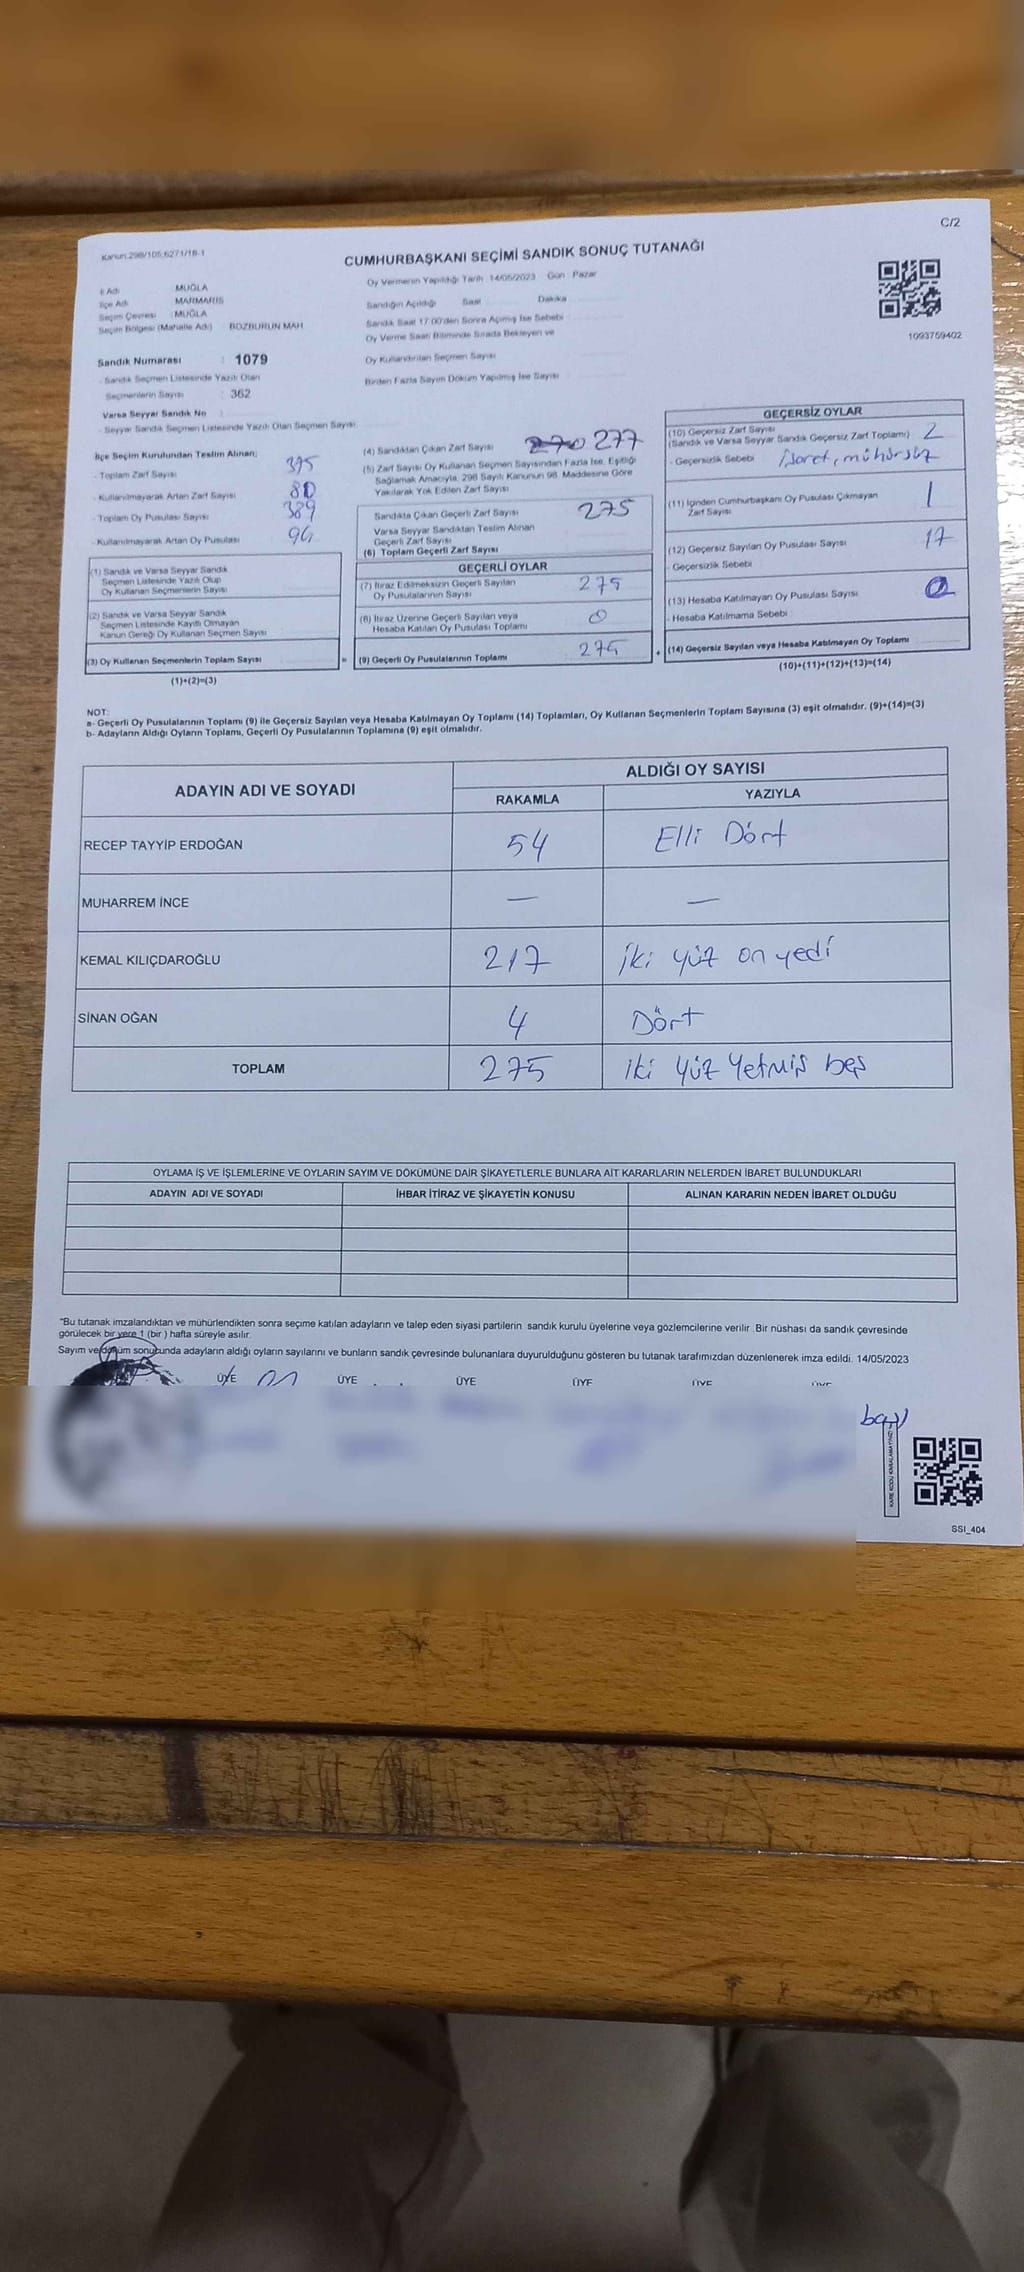 C/2
Kanun:298/105,6271/18-1
CUMHURBAŞKANI SEÇİMİ SANDIK SONUÇ TUTANAĞI
İl Adı : MUĞLA
İlçe Adı : MARMARİS
Seçim Çevresi : MUĞLA
Seçim Bölgesi (Mahalle Adı) : BOZBURUN MAH
Sandık Numarası : 1079
- Sandık Seçmen Listesinde Yazılı Olan
Seçmenlerin Sayısı : 362
Varsa Seyyar Sandık No :
- Seyyar Sandık Seçmen Listesinde Yazılı Olan Seçmen Sayısı
Oy Vermenin Yapıldığı Tarih : 14/05/2023 Gün : Pazar
Sandığın Açıldığı Saat Dakika
Sandık Saat 17:00'den Sonra Açılmış İse Sebebi
Oy Verme Saati Bitiminde Sırada Bekleyen ve
Oy Kullandırılan Seçmen Sayısı
Birden Fazla Sayım Döküm Yapılmış İse Sayısı
1093759402
İlçe Seçim Kurulundan Teslim Alınan;
- Toplam Zarf Sayısı
- Kullanılmayarak Artan Zarf Sayısı 80
- Toplam Oy Pusulası Sayısı 389
- Kullanılmayarak Artan Oy Pusulası
(1) Sandık ve Varsa Seyyar Sandık
Seçmen Listesinde Yazılı Olup
Oy Kullanan Seçmenlerin Sayısı
(2) Sandık ve Varsa Seyyar Sandık
Seçmen Listesinde Kayıtlı Olmayan
Kanun Gereği Oy Kullanan Seçmen Sayısı
(3) Oy Kullanan Seçmenlerin Toplam Sayısı =
(1)+(2)=(3)
(4) Sandıktan Çıkan Zarf Sayısı 270 277
(5) Zarf Sayısı Oy Kullanan Seçmen Sayısından Fazla İse, Eşitliği
Sağlamak Amacıyla, 298 Sayılı Kanunun 98. Maddesine Göre
Yakılarak Yok Edilen Zarf Sayısı
Sandıkta Çıkan Geçerli Zarf Sayısı 275
Varsa Seyyar Sandıktan Teslim Alınan
Geçerli Zarf Sayısı
(6) Toplam Geçerli Zarf Sayısı
GEÇERLİ OYLAR
(7) İtiraz Edilmeksizin Geçerli Sayılan
Oy Pusulalarının Sayısı 275
(8) İtiraz Üzerine Geçerli Sayılan veya
Hesaba Katılan Oy Pusulası Toplamı 0
(9) Geçerli Oy Pusulalarının Toplamı 275 +
GEÇERSİZ OYLAR
(10) Geçersiz Zarf Sayısı
(Sandık ve Varsa Seyyar Sandık Geçersiz Zarf Toplamı) 2
- Geçersizlik Sebebi : işaret, mühürsüz
(11) İçinden Cumhurbaşkanı Oy Pusulası Çıkmayan
Zarf Sayısı 1
(12) Geçersiz Sayılan Oy Pusulası Sayısı 17
- Geçersizlik Sebebi
(13) Hesaba Katılmayan Oy Pusulası Sayısı 0
- Hesaba Katılmama Sebebi :
(14) Geçersiz Sayılan veya Hesaba Katılmayan Oy Toplamı
(10)+(11)+(12)+(13)=(14)
NOT:
a- Geçerli Oy Pusulalarının Toplamı (9) ile Geçersiz Sayılan veya Hesaba Katılmayan Oy Toplamı (14) Toplamları, Oy Kullanan Seçmenlerin Toplam Sayısına (3) eşit olmalıdır. (9)+(14)=(3)
b- Adayların Aldığı Oyların Toplamı, Geçerli Oy Pusulalarının Toplamına (9) eşit olmalıdır.
ADAYIN ADI VE SOYADI
ALDIĞI OY SAYISI
RAKAMLA YAZIYLA
RECEP TAYYİP ERDOĞAN 54 Elli Dört
MUHARREM İNCE — —
KEMAL KILIÇDAROĞLU 217 iki yüz on yedi
SİNAN OĞAN 4 Dört
TOPLAM 275 iki yüz yetmiş beş
OYLAMA İŞ VE İŞLEMLERİNE VE OYLARIN SAYIM VE DÖKÜMÜNE DAİR ŞİKAYETLERLE BUNLARA AİT KARARLARIN NELERDEN İBARET BULUNDUKLARI
ADAYIN ADI VE SOYADI İHBAR İTİRAZ VE ŞİKAYETİN KONUSU ALINAN KARARIN NEDEN İBARET OLDUĞU
"Bu tutanak imzalandıktan ve mühürlendikten sonra seçime katılan adayların ve talep eden siyasi partilerin sandık kurulu üyelerine veya gözlemcilerine verilir. Bir nüshası da sandık çevresinde
görülecek bir yere 1 (bir ) hafta süreyle asılır.
Sayım ve döküm sonucunda adayların aldığı oyların sayılarını ve bunların sandık çevresinde bulunanlara duyurulduğunu gösteren bu tutanak tarafımızdan düzenlenerek imza edildi. 14/05/2023
ÜYE ÜYE ÜYE ÜYE ÜYE ÜYE
KARE KODU KARALAMAYINIZ
SSI_404